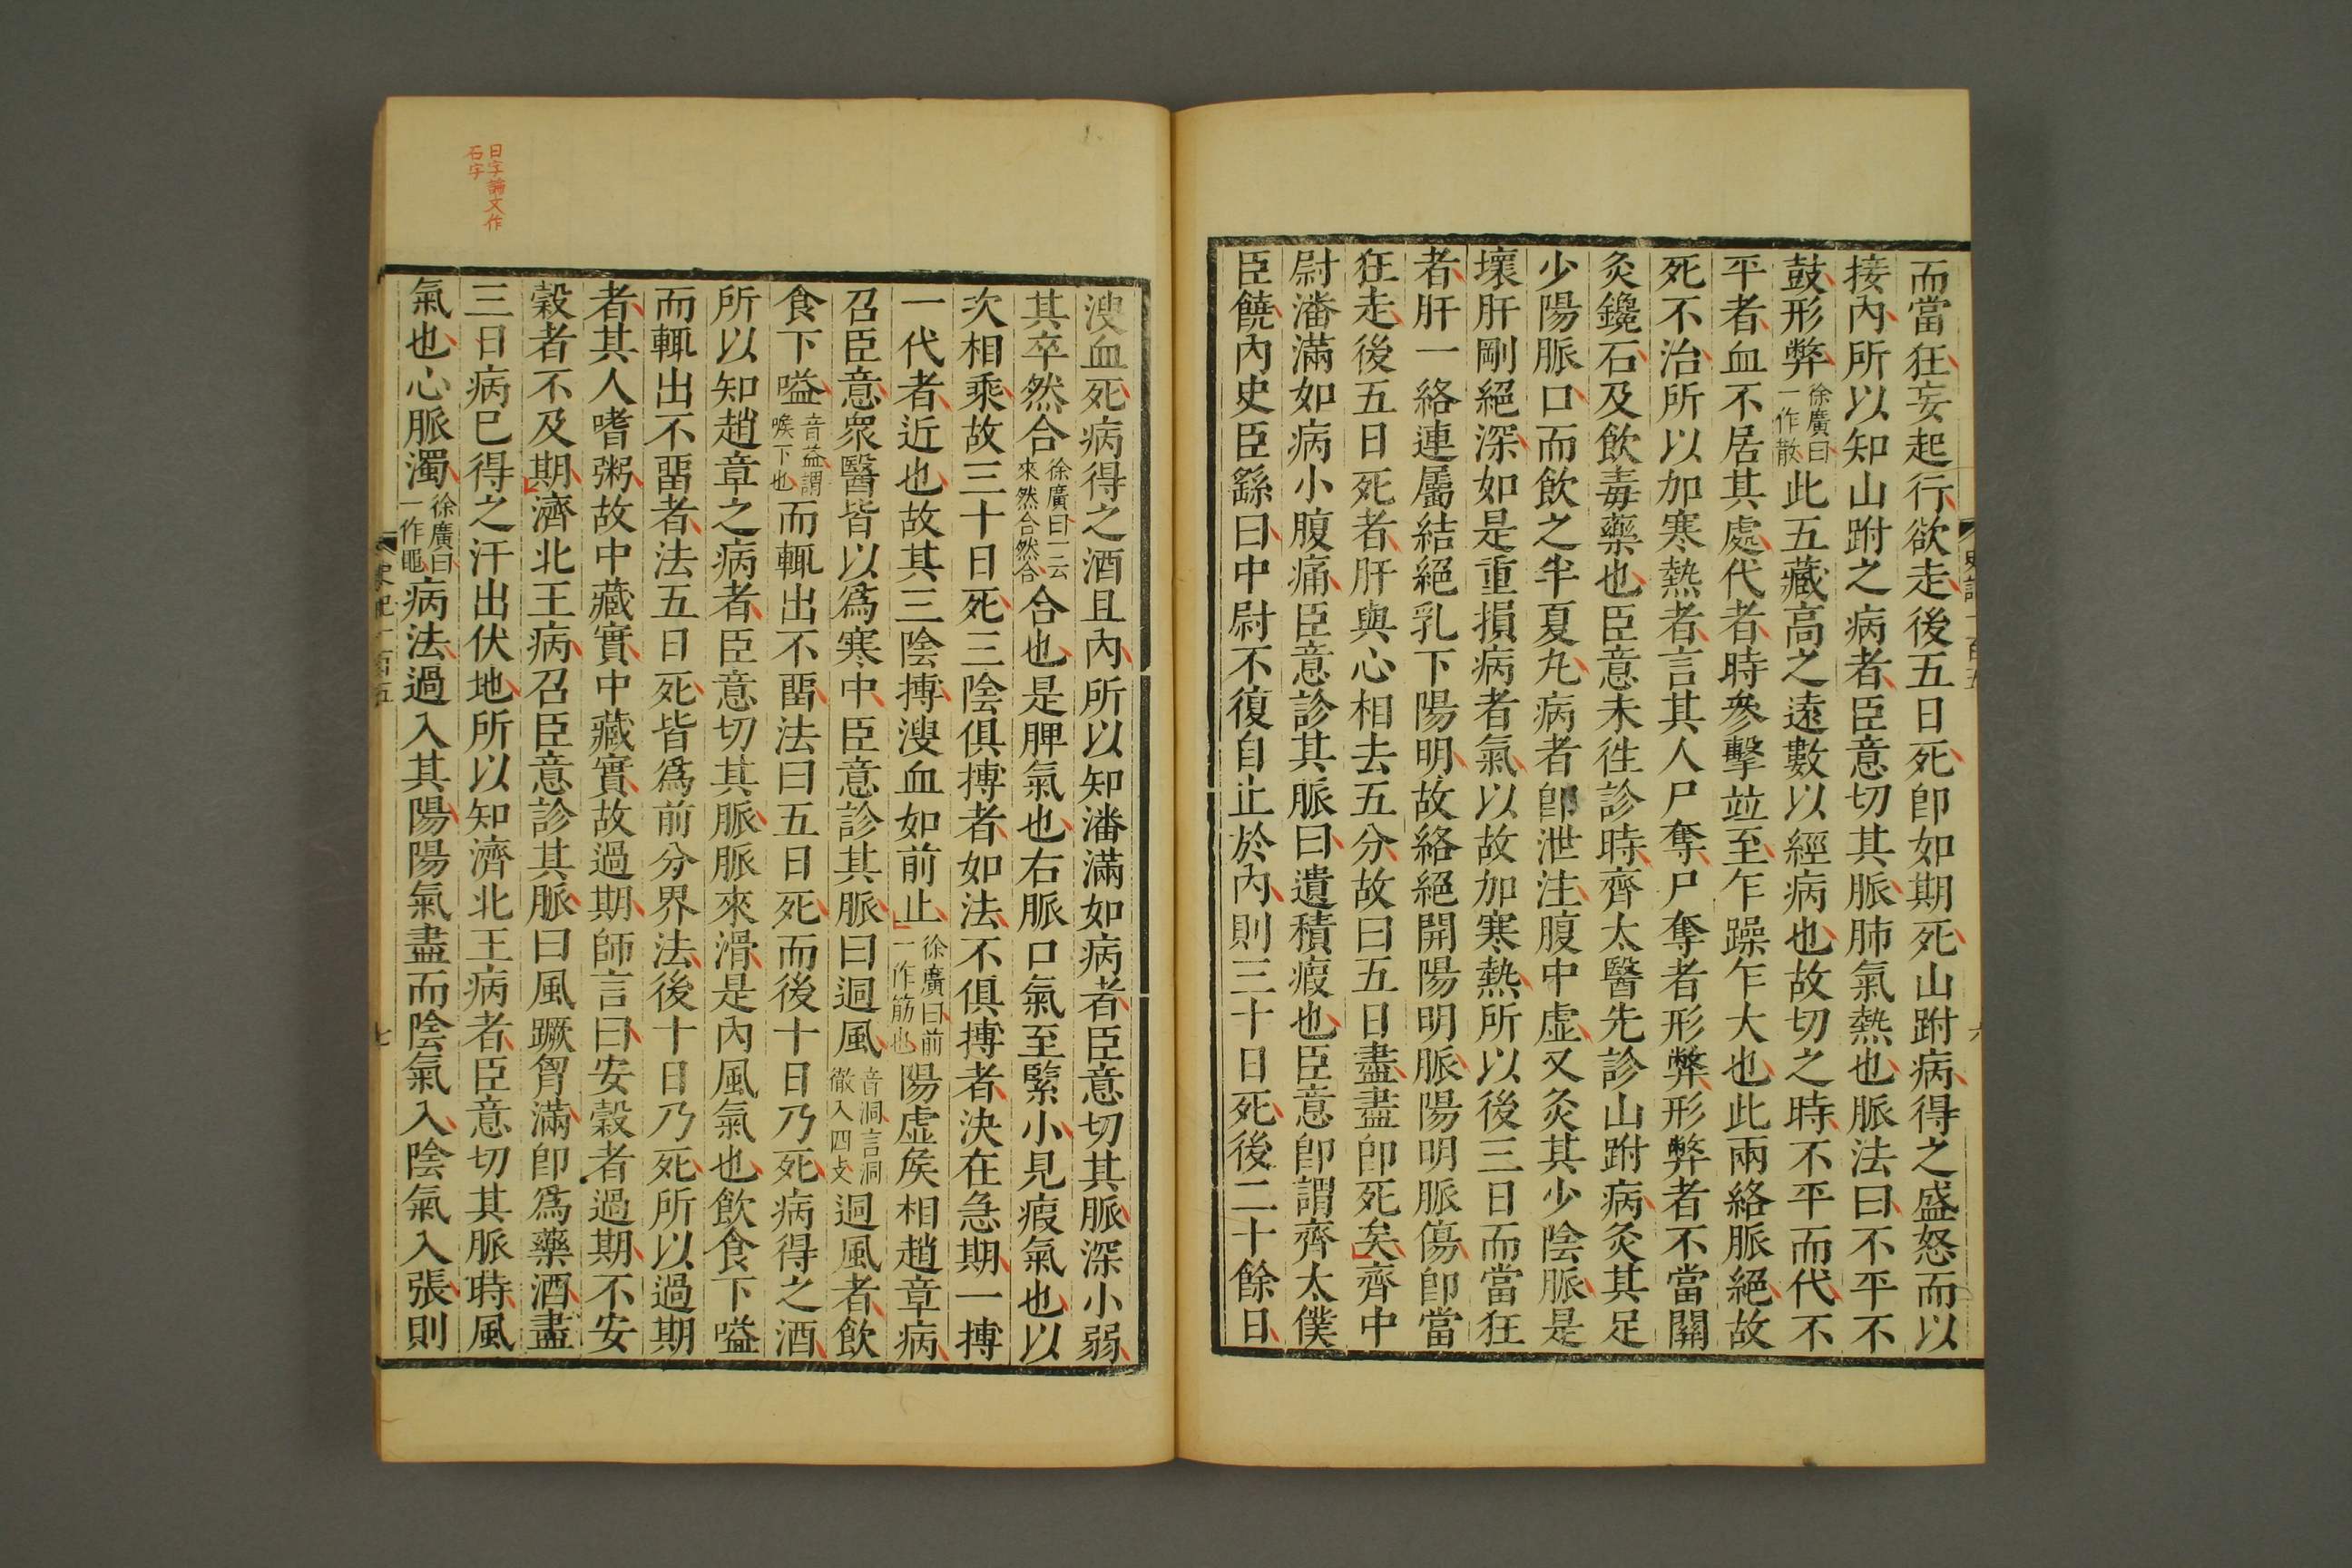 而當狂妄起行欲走後五日死卽如期死山跗病得之盛怒而以
接內所以知山跗之病者臣意切其脈肺氣熱也脈法曰不平不
鼓形弊徐廣曰一作散此五藏高之遠數以經病也故切之時不平而代不
平者血不居其處代者時參擊竝至乍躁乍大也此兩絡脈絕故
死不治所以加寒熱者言其人尸奪尸奪者形弊形弊者不當關
灸鑱石及飲毒藥也臣意未徃診時齊太醫先診山跗病灸其足
少陽脈口而飲之半夏丸病者卽泄注腹中虛又灸其少陰脈是
壞肝剛絕深如是重損病者氣以故加寒熱所以後三日而當狂
者肝一絡連屬結絕乳下陽明故絡絕開陽明脈陽明脈傷卽當
狂走後五日死者肝與心相去五分故曰五日盡盡卽死矣齊中
尉潘滿如病小腹痛臣意診其脈曰遺積瘕也臣意卽謂齊太僕
臣饒內史臣繇曰中尉不復自止於內則三十日死後二十餘日
溲血死病得之酒且內所以知潘滿如病者臣意切其脈深小弱
其卒然合徐廣曰一云來然合然合合也是脾氣也右脈口氣至緊小見瘕氣也以
次相乘故三十日死三陰俱搏者如法不俱搏者決在急期一搏
一代者近也故其三陰搏溲血如前止徐廣曰前一作筋也陽虛矦相趙章病
召臣意眾醫皆以爲寒中臣意診其脈曰迵風音洞言洞徹入四支迵風者飲
食下嗌音益謂喉下也而輒出不畱法曰五日死而後十日乃死病得之酒
所以知趙章之病者臣意切其脈脈來滑是內風氣也飲食下嗌
而輒出不畱者法五日死皆爲前分界法後十日乃死所以過期
者其人嗜粥故中藏實中藏實故過期師言曰安穀者過期不安
穀者不及期濟北王病召臣意診其脈曰風蹶胷滿卽爲藥酒盡
三日病巳得之汗出伏地所以知濟北王病者臣意切其脈時風
氣也心脈濁徐廣曰一作黽病法過入其陽陽氣盡而陰氣入陰氣入張則
日字諸文作
石字
史記一百五
六
七